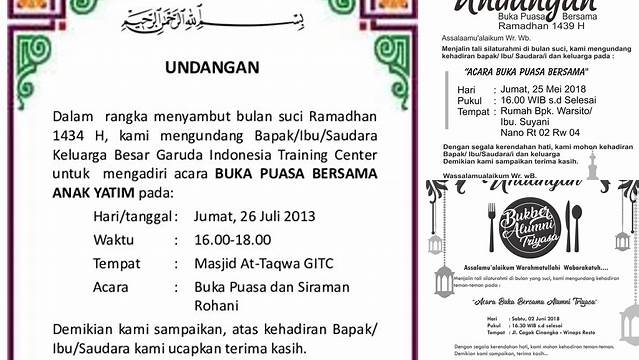 بسم الله الرحمن الرحيم
UNDANGAN
Dalam rangka menyambut bulan suci Ramadhan
1434 H, kami mengundang Bapak/Ibu/Saudara
Keluarga Besar Garuda Indonesia Training Center
untuk mengadiri acara BUKA PUASA BERSAMA
ANAK YATIM pada:
Hari/tanggal : Jumat, 26 Juli 2013
Waktu : 16.00-18.00
Tempat : Masjid At-Taqwa GITC
Acara : Buka Puasa dan Siraman
Rohani
Demikian kami sampaikan, atas kehadiran Bapak/
Ibu/Saudara kami ucapkan terima kasih.
Undangan
Buka Puasa Bersama
Ramadhan 1439 H
Assalaamu'alaikum Wr. Wb.
Menjalin tali silaturahmi di bulan suci, kami mengundang
kehadiran bapak/ Ibu/ Saudara/i dan keluarga pada :
"ACARA BUKA PUASA BERSAMA"
Hari : Jumat, 25 Mei 2018
Pukul : 16.00 WIB s.d Selesai
Tempat : Rumah Bpk. Warsito/
Ibu. Suyani
Nano Rt 02 Rw 04
Dengan segala kerendahan hati, kami mohon kehadiran
Bapak/ Ibu/Saudara/i dan keluarga
Demikian kami sampaikan terima kasih.
Wassalamualaikum Wr. wB.
Undangan
Bukber
Alumni
Triyasa
Assalamu'alaikum Warahmatullahi Wabarakatuh....
Menjalin tali silaturahmi di bulan yang suci, kami mengundang kehadiran
teman-teman pada :
"Acara Buka Bersama Alumni Triyasa"
Hari : Sabtu, 02 Juni 2018
Pukul : 16.30 WIB s.d selesai
Tempat : Jl. Cagak Cinangka - Winaps Resto
Dengan segala kerendahan hati, kami mohon kehadiran teman-teman.
Demikian kami sampaikan, terima kasih...